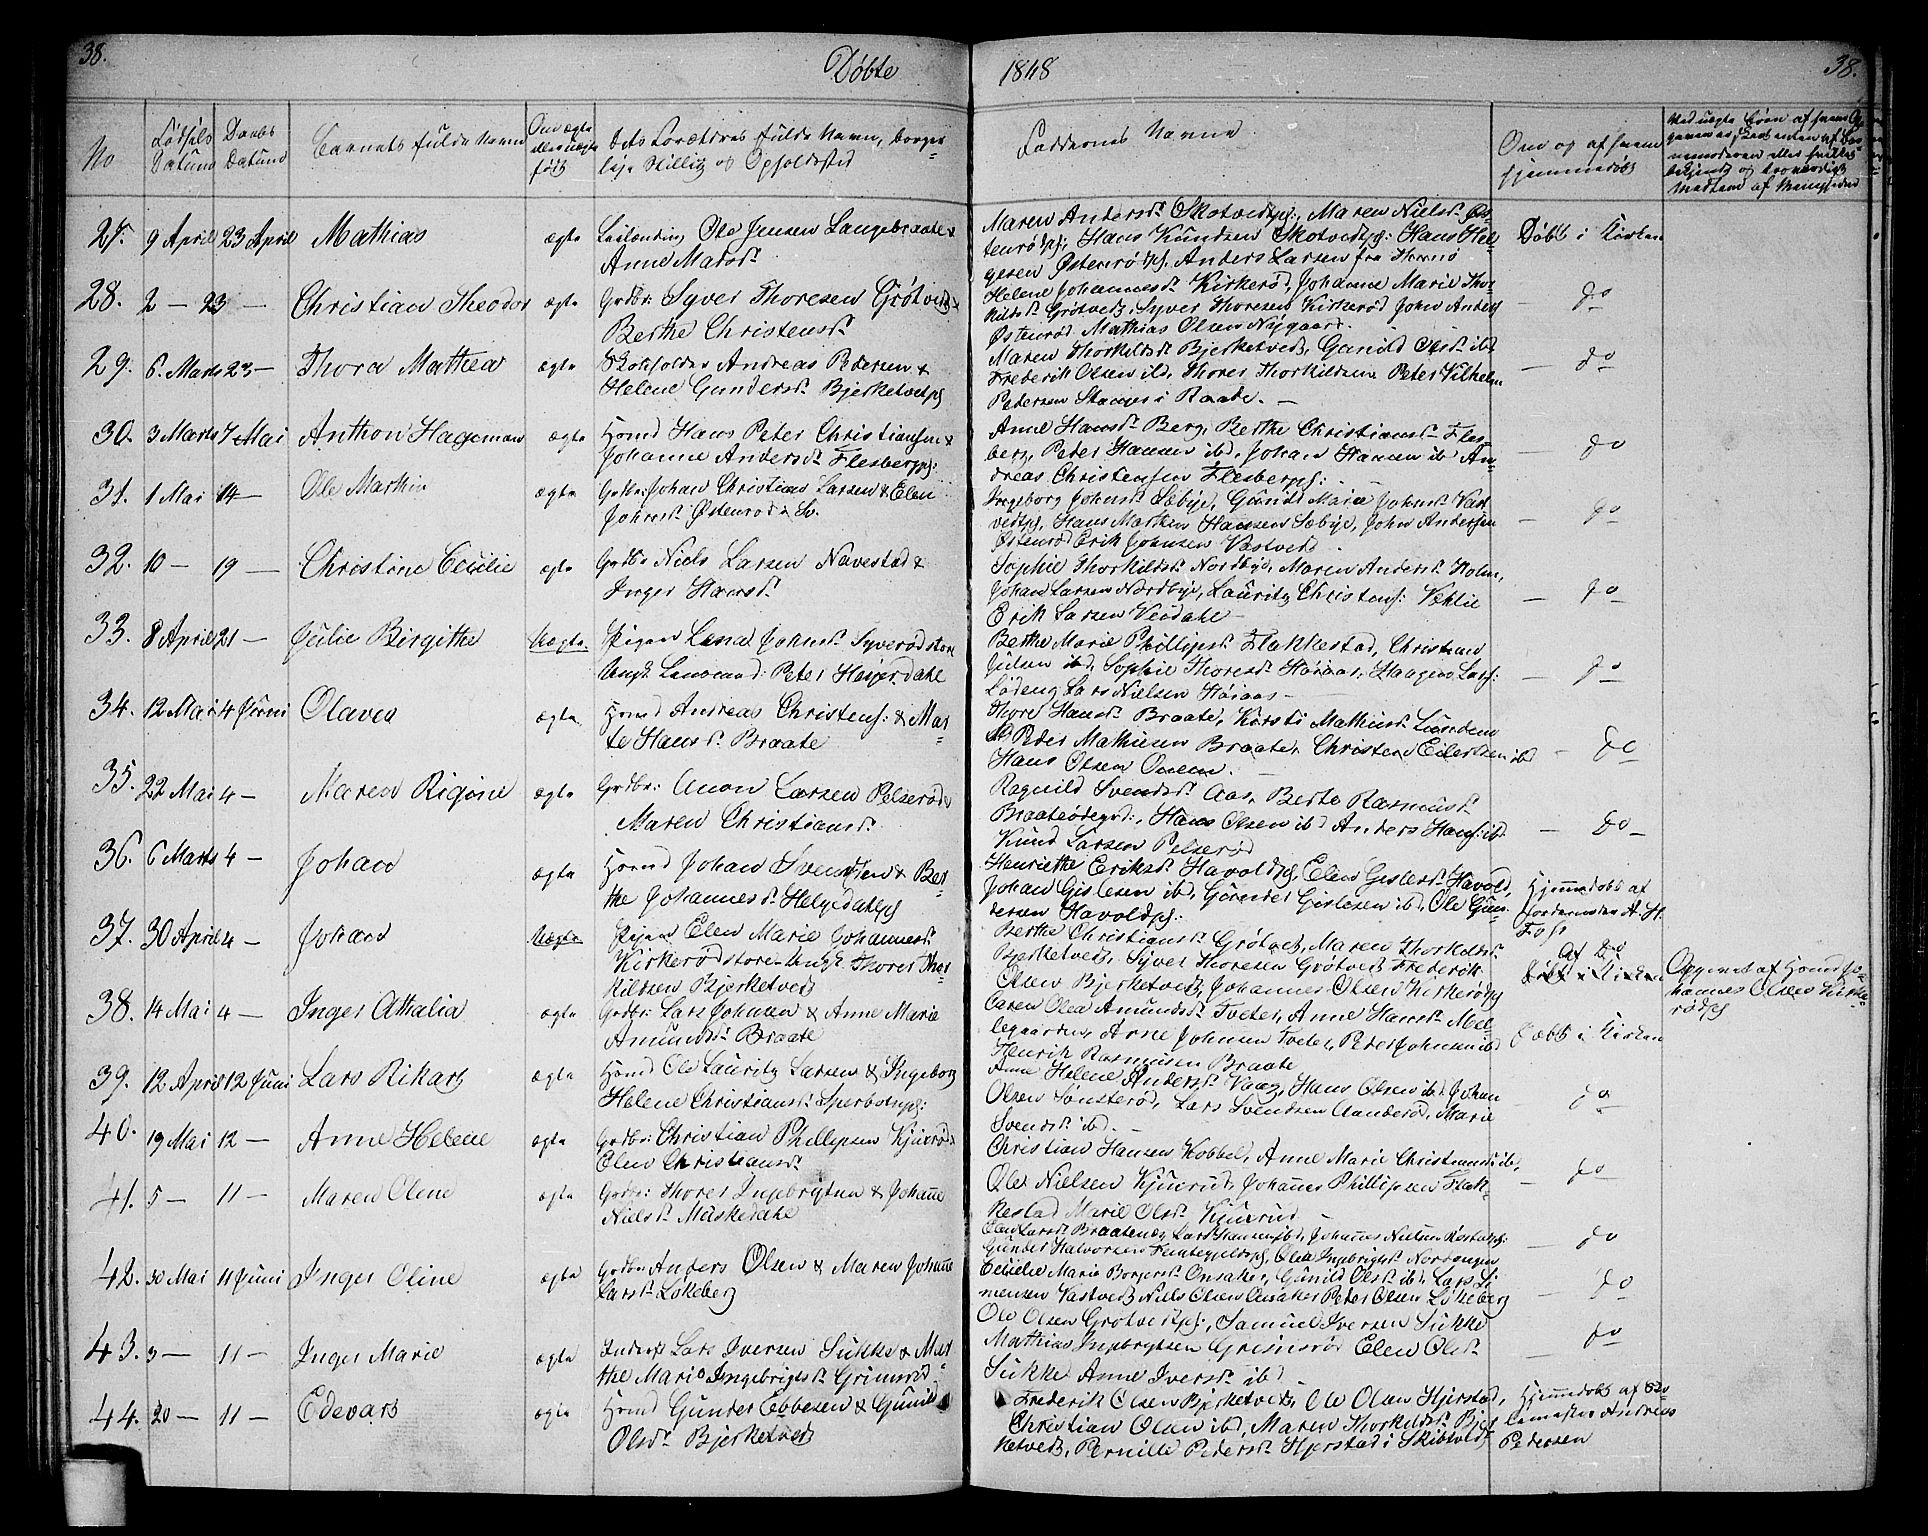 38. Døbte 1848 38.
No
Fødsels Datum
Daabs Datum
Barnets fulde Navn
Om ægte eller uægte født
Dets Forældres fulde Navn, borgerlige Stilling og Opholdssted
Faddernes Navne
Om og af hvem hjemmedøbt
27. 9 April 23 April Mathias ægte Ole Jensen Langebraate &
Anne Madsd.
Maren Andersd. Skotvedpg:, Maren Nielsd. Øs-
tenrødpg: Hans Knudsen Skotvedtpg: Hans Hel-
gesen Østenrødpg, Anders Larsen fra
Døbt i Kirken
28. 2 — 23 — Christian Theodor ægte Grdbr: Syver Thoresen Grøtved &
Berthe Christensd.
Helene Johannesd. Kirkerød, Johanne Marie Thor-
kildsd. Grøtved, Syver Thoresen Kirkerød John Anders
Østenrød Mathias Olsen Nygaard.
— do
29. 6. Marts 23 — Thora Mathea ægte Andreas Pedersen &
Helene Gundersd. Bjerketvedpg
Maren Thorkildsd. Bjerketved, Gunild Olsd. ibd.
Frederik Olsen ibd, Thores Thorkildsen Peter Vilhelm
Pedersen Stanges i Raade. —
— do
30. 3 Marts 7 Mai Anthon Hageman ægte Hsmd Hans Peter Christiansen &
Johanne Andersd. Flesbergpg:
Anne Hansd. Berg, Berthe Christiansd. Fles-
berg, Peter Hansen ibd, Johan Hansen ib An-
dreas Christensen Flesbergpg:
— do
31. 1 Mai 14 — Ole Martin ægte Johan Christian Larsen & Elen
Johnsd. Østenrød
Ingeborg Johnsd. Sæbye, Gunild Marie Johnsd. Vast-
vedtpg, Hans Martin Hansen Sæbye, John Andersen
Østenrød Erik Johnsen Vastved
— do
32. 10 — 19 — Christine Cecilie ægte Grdbr Niels Larsen Navestad &
Inger Hansd.
Sophie Thorkildsd. Nordbye, Maren Andersd. Holm,
Johan Larsen Nordbye, Lauritz Christens:
Erik Larsen
— do
33. 8 April 21 — Julie Birgithe Uægte. Pigen Lena Johnsd. Syverødstore
Ungk. Peter Hesjerdahl
Berthe Marie Phillipsd. Flakkestad, Christian
Julsen ibd, Sophie Thoresd. Høiaas, Haagen Lars:
Lars Nielsen Høiaas —
— do
34. 12 Mai 4 Juni Olava ægte Hsmd Andreas Christens: & Mar-
te Hansd. Braate
Thore Hansd. Braate, Karsti Mathisd. Lunden
Peder Mathisen Braate, Christen Eilertsen ibd
Hans Olsen Onem. —
— do
35. 22 Mai 4 — Maren Rigine ægte Grdbr: Anon Larsen Pelserød
Maren Christiansd.
Ragnild Svendsd. Aas, Berte Rasmusd.
Braaterødegrd:, Hans Olsen ibd Anders Hans: ibd.
Knud Larsen Pelserød
— do —
36. 6 Marts 4 — Johan ægte Hsmd Johan Svendsen & Ber-
the Johannesd. Helgedahlpg
Henriethe Eriksd. Havoldpg, Elen Gislesd. Havold,
Johan Gislesen ibd, Gunder Gislesen ibd, Ole Gun-
dersen Havoldpg:
Hjemmedøbt af
Jordemoder A. H.
Foss
37. 30 April 4 — Johan Uægte Pigen Elen Marie Johannesd.
Kirkerødstore — Ungk. Thores Thor-
kildsen Bjerketved
Berthe Christiansd. Grøtved, Maren Thorkildsd.
Bjerketved, Syver Thoresen Grøtved Frederik
Olsen Bjerketved, Johannes Olsen Kirkerødpg
Af Do
Døbt i Kirken
Opgivet af Hsmd Jo-
hannes Olsen Kirke-
rødpg
38. 14 Mai 4 — Inger Athalia ægte Grdbr: Lars Johnsen & Anne Marie
Amundsd. Braate
Karen Olea Amundsd. Tveter, Anne Hansd. Mel-
legaarden, Arne Johnsen Tveter, Peder Johnsen ibd
Henrik Rasmusen Braate
Døbt i Kirken
39. 12 April 12 Juni Lars Rikart ægte Hsmd Ole Lauritz Larsen & Ingeborg
Helene Christiansd. Sperbotnpg:
Anne Helene Andersd. Vaag, Hans Olsen ibd Johan
Olsen Sønsterød, Lars Svendsen Aanderød, Marie
Svendsd. ibd. —
do
40. 19 Mai 12 — Anne Helene ægte Grdbr: Christian Phillipsen Kjuxrød &
Elen Christiansd.
Christian Hansen Kobbel, Anne Marie Christiansd. ib,
Ole Nielsen Kjuxrud, Johannes Phillipsen Flak-
kestad Marie Olsd. Kjuxrud
— do
41. 5 — 11 — Maren Oline ægte Grdbr: Thores Ingebrigtsen & Johanne
Nielsd. Muskedahl
Larsd. Braatene, Lars Hansen ibd, Johannes Nielsen
Gunder Halvorsen Olea Ingebrigtsd. Nordengen
— do
42. 30 Mai 11 Juni Inger Oline ægte Grdbr Anders Olsen & Maren Johanne
Larsd. Løkeberg
Cecilie Marie Borgersd. Onsaker, Gunild Olsd. ibd, Lars Si-
mensen Vastved Niels Olsen Onsaker Peter Olsen Løkeberg
— do
43. 3 — 11 — Inger Marie ægte Inderst Lars Iversen Sukke & Mar-
the Marie Ingebrigtsd. Grimsrød
Ole Olsen Grøtvedtpg:, Samuel Iversen Sukke
Mathias Ingebrigtsen Grimsrød Elen Olsd.
Sukke Anne Iversd. ibd
— do
44. 20 — 11 — Edevart ægte Hsmd Gunder Ebbesen & Gunild
Olsd. Bjerketved
Frederik Olsen Bjerketved, Ole Olsen Hjerstad,
Christian Olsen ibd, Maren Thorkildsd. Bjer-
ketved, Pernille Pedersd. Hjerstad i Skibtvedt
Hjemmedøbt af Sko-
lemester Andreas
Pedersen